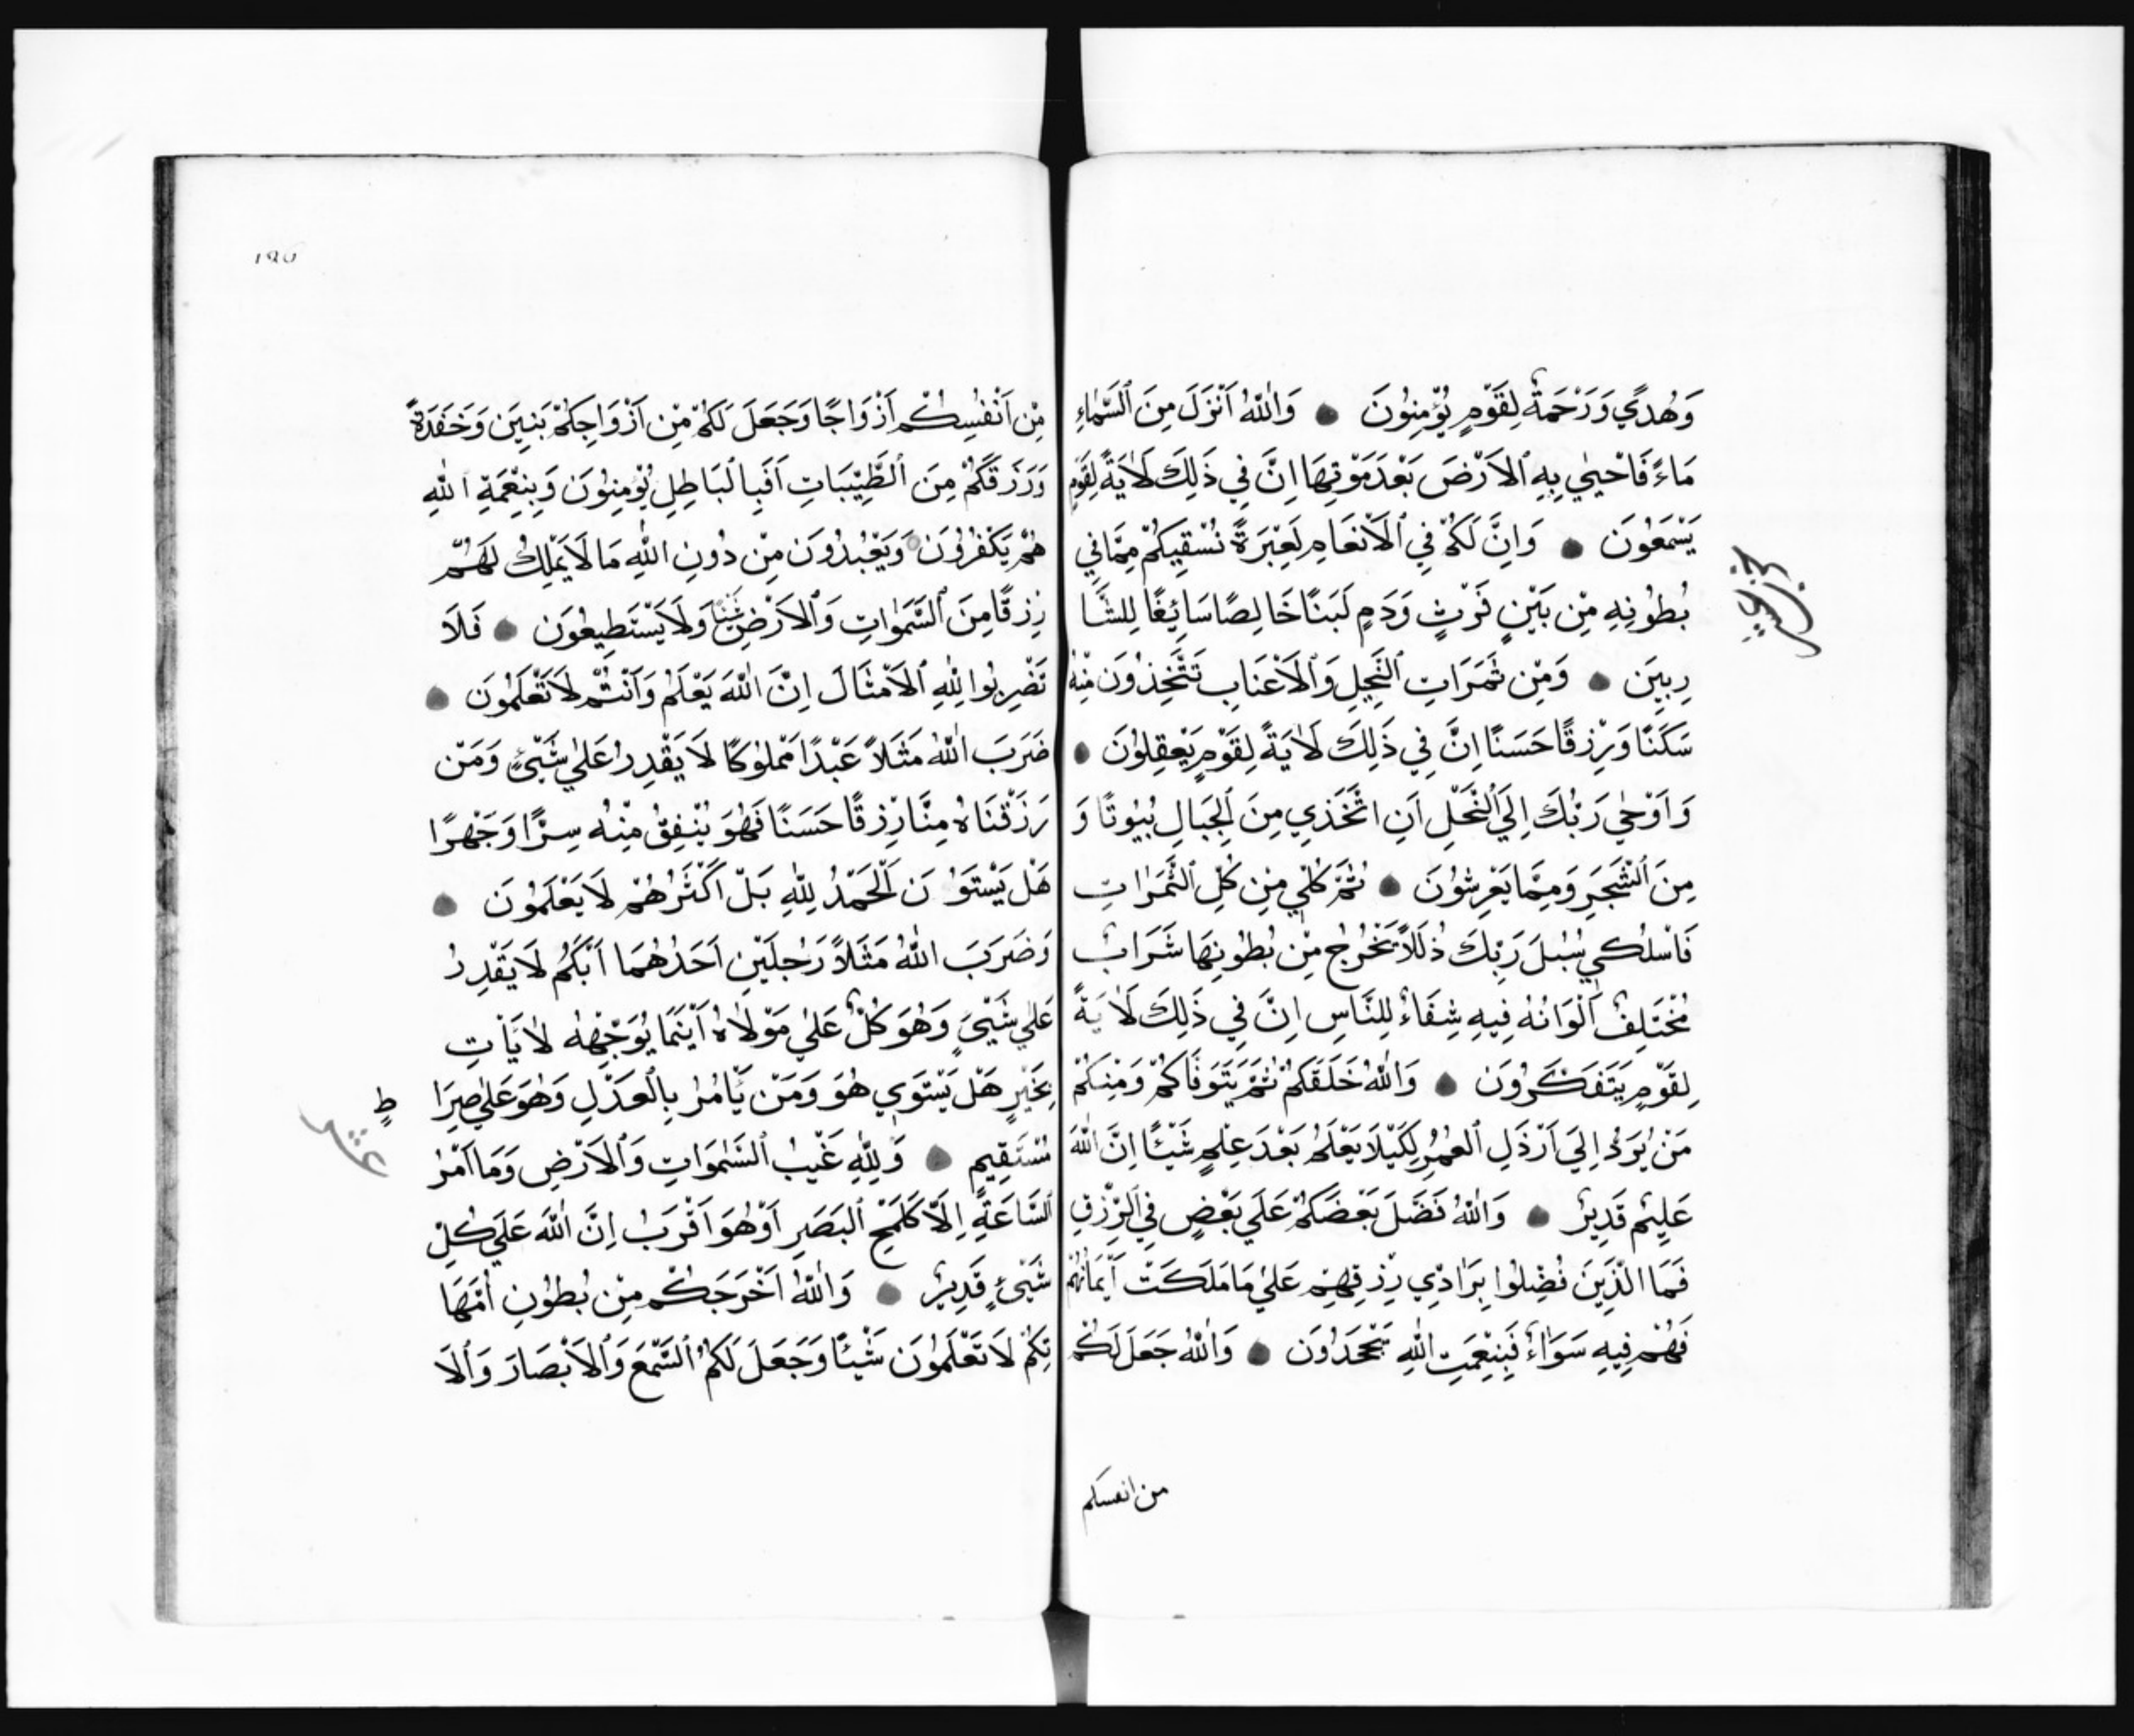 وَهُدًي وَرَحْمَةً لِقَوْمٍ يُؤْمِنُونَ ● وَاللّٰهُ اَنْزَلَ مِنَ ٱلسَّمَاءِ
مَاءً فَاَحْيٰي بِهِ ٱلاَرْضَ بَعْدَ مَوْتِهَا اِنَّ فِي ذَلِكَ لَاٰيَةً لِقَوْمٍ
يَسْمَعُونَ ● وَاِنَّ لَكُمْ فِي ٱلاَنْعَامِ لَعِبْرَةً نُسْقِيكُمْ مِمَّا فِي
بُطُونِهِ مِنْ بَيْنِ فَرْثٍ وَدَمٍ لَبَنًا خَالِصًا سَائِغًا لِلشَّا
رِبِينَ ● وَمِنْ ثَمَرَاتِ ٱلنَّخِيلِ وَٱلاَعْنَابِ تَتَّخِذُونَ مِنْهُ
سَكَنًا وَرِزْقًا حَسَنًا اِنَّ فِي ذَلِكَ لَاٰيَةً لِقَوْمٍ يَعْقِلُونَ ●
وَاَوْحٰي رَبُّكَ اِلَي ٱلنَّحْلِ اَنِ اتَّخَذِي مِنَ ٱلجِبَالِ بُيُوتًا وَ
مِنَ ٱلشَّجَرِ وَمِمَّا يَعْرِشُونَ ● ثُمَّ كُلِي مِنْ كُلِّ ٱلثَّمَرٰاتِ
فَاسْلُكِي سُبُلَ رَبِّكَ ذُلَلاً يَخْرُجُ مِنْ بُطُونِهَا شَرَابٌ
مُخْتَلِفٌ اَلْوَانُهُ فِيهِ شِفَاءٌ لِلنَّاسِ اِنَّ فِي ذَلِكَ لَاٰيَةً
لِقَوْمٍ يَتَفَكَّرُونَ ● وَاللّٰهُ خَلَقَكُمْ ثُمَّ يَتَوَفَّاكُمْ وَمِنْكُمْ
مَنْ يُرَدُّ اِلَي اَرْذَلِ ٱلعُمُرِ لِكَيْلَا يَعْلَمَ بَعْدَ عِلْمٍ شَيْئًا اِنَّ اللّٰهَ
عَلِيمٌ قَدِيرٌ ● وَاللّٰهُ فَضَّلَ بَعْضَكُمْ عَلَي بَعْضٍ فِي ٱلرِّزْقِ
فَمَا الَّذِينَ فُضِّلُوا بِرَادِّي رِزْقِهِمْ عَلٰي مَا مَلَكَتْ اَيْمَانُهُمْ
فَهُمْ فِيهِ سَوَاءٌ فَبِنِعْمَتِ اللّٰهِ تَجْحَدُونَ ● وَاللّٰهُ جَعَلَ لَكُمْ
من انفسكم
مِنْ اَنْفُسِكُمْ اَزْوَاجًا وَجَعَلَ لَكُمْ مِنْ اَزْوَاجِكُمْ بَنِينَ وَحَفَدَةً
وَرَزَقَكُمْ مِنَ ٱلطَّيِّبَاتِ اَفَبِالْبَاطِلِ يُؤْمِنُونَ وَبِنِعْمَةِ اللّٰهِ
هُمْ يَكْفُرُونَ وَيَعْبُدُونَ مِنْ دُونِ اللّٰهِ مَا لَا يَمْلِكُ لَهُمْ
رِزْقًا مِنَ ٱلسَّمٰوَاتِ وَٱلاَرْضِ شَيْئًا وَلَا يَسْتَطِيعُونَ ● فَلَا
تَضْرِبُوا لِلّٰهِ ٱلاَمْثَالَ اِنَّ اللّٰهَ يَعْلَمُ وَاَنْتُمْ لَا تَعْلَمُونَ ●
ضَرَبَ اللّٰهُ مَثَلاً عَبْدًا مَمْلُوكًا لَا يَقْدِرُ عَلٰي شَيْئٍ وَمَنْ
رَزَقْنَاهُ مِنَّا رِزْقًا حَسَنًا فَهُوَ يُنْفِقُ مِنْهُ سِرًّا وَجَهْرًا
هَلْ يَسْتَوُنَ اَلْحَمْدُ لِلّٰهِ بَلْ اَكْثَرُهُمْ لَا يَعْلَمُونَ ●
وَضَرَبَ اللّٰهُ مَثَلاً رَجُلَيْنِ اَحَدُهُمَا اَبْكَمُ لَا يَقْدِرُ
عَلٰي شَيْئٍ وَهُوَ كَلٌّ عَلٰي مَوْلَاهُ اَيْنَمَا يُوَجِّهْهُ لَا يَاْتِ
بِخَيْرٍ هَلْ يَسْتَوِي هُوَ وَمَنْ يَاْمُرُ بِالْعَدْلِ وَهُوَ عَلٰي صِرَا
طٍ
مُسْتَقِيمٍ ● وَلِلّٰهِ غَيْبُ ٱلسَّمٰوَاتِ وَٱلاَرْضِ وَمَا اَمْرُ
ٱلسَّاعَةِ اِلَّا كَلَمْحِ ٱلبَصَرِ اَوْ هُوَ اَقْرَبُ اِنَّ اللّٰهَ عَلَي كُلِّ
شَيْئٍ قَدِيرٌ ● وَاللّٰهُ اَخْرَجَكُمْ مِنْ بُطُونِ اُمَّهَا
تِكُمْ لَا تَعْلَمُونَ شَيْئًا وَجَعَلَ لَكُمُ ٱلسَّمْعَ وَٱلاَبْصَارَ وَٱلاَ